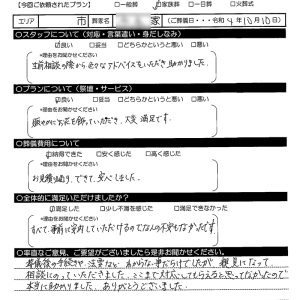 【今回ご依頼されたプラン】 □一般葬 ☑家族葬 □一日葬 □火葬式
エリア 市 葬家名 家 (ご葬儀日・・・令和4年10月10日)
○スタッフについて(対応・言葉遣い・身だしなみ)
☑良い □妥当 □どちらかというと悪い □悪い
*理由をお聞かせください
事前相談の際から色々なアドバイスをいただき助かりました。
○プランについて(祭壇・サービス)
☑良い □妥当 □どちらかというと悪い □悪い
*理由をお聞かせください
賑やかにお花を飾っていただき、大変満足です。
○葬儀費用について
☑納得できた □安く感じた □高く感じた
*理由をお聞かせください
お見積り通りで、安心しました。
○全体的に満足いただけましたか?
☑満足した □少し不満を感じた □満足できなかった
*理由をお聞かせください
すべて、事前に案内していただけるので なんの不安もなかったです
○率直なご意見、ご要望がございましたら是非お聞かせください。
葬儀後の手続きや、法要など、わからない事だらけでしたが、親身になって
相談にのっていただきました。ここまで対応してもらえると思ってなかったので
本当に助かりました。ありがとうございました。